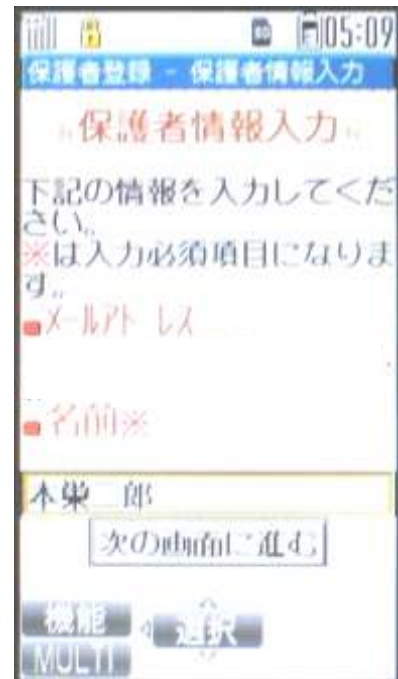 05:09
保護者登録 - 保護者情報入力
保護者情報入力
下記の情報を入力してくだ
さい。
※は入力必須項目になりま
す。
■メールアドレス
■名前※
本栄二郎
次の画面に進む
機能 選択
MULTI